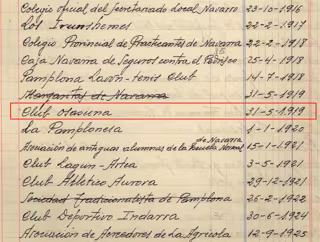 Colegio oficial del Secretariado Local Navarro 23-10-1916
Los Irunshemes 22-2-1917
Colegio Provincial de Practicantes de Navarra 22-2-1918
Caja Navarra de Seguros contra el Pedrisco 25-4-1918
Pamplona Lawn-tenis Club 14-7-1918
Margaritas de Navarra 21-5-1919
Club Osasuna 21-5-1919
La Pamplonesa 1-1-1920
de Navarra
Asociación de antiguas alumnas de la Escuela Normal 15-1-1921
Club Lagun-Artea 3-5-1921
Club Atlético Aurora 29-12-1921
Sociedad Tradicionalista de Pamplona 26-2-1922
Club Deportivo Indarra 30-6-1924
Asociación de Acreedores de La Agrícola 12-9-1925